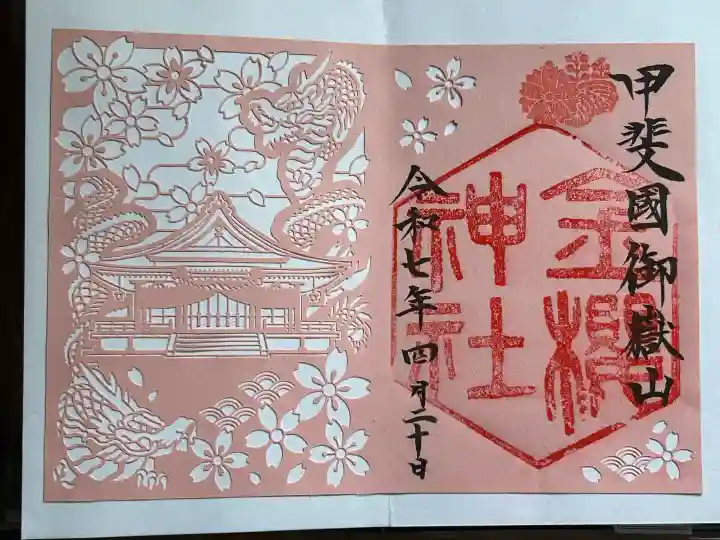 甲斐國御嶽山
金櫻神社
令和七年四月二十日